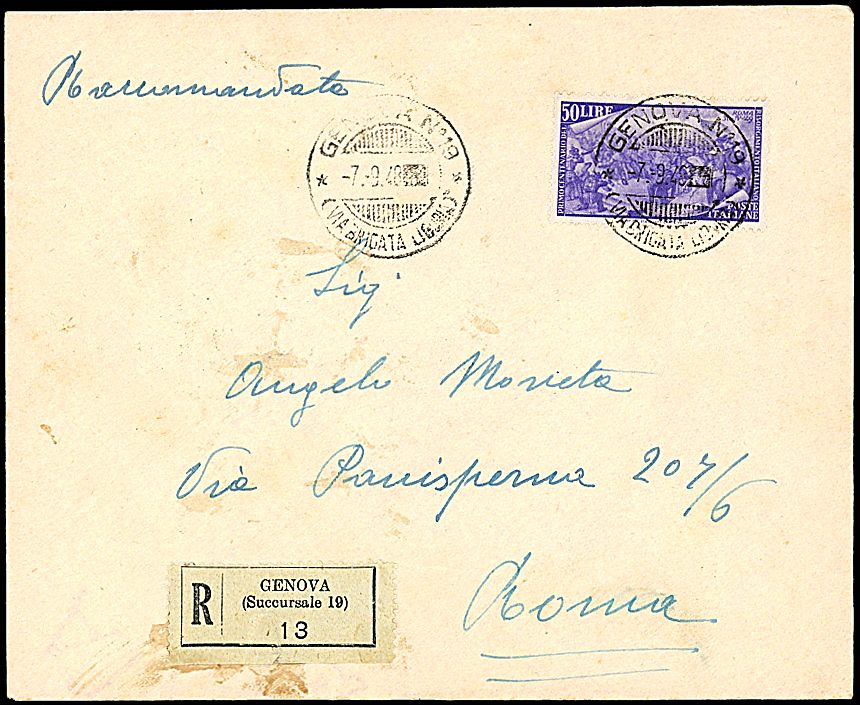 Raccomandata
GENOVA N°19
-7.-9.48
(VIA BRIGATA LIGURIA)
50 LIRE
PRIMO CENTENARIO DEL
RISORGIMENTO ITALIANO
ROMA
POSTE
ITALIANE
GENOVA N°19
-7.-9.48
(VIA BRIGATA LIGURIA)
Sig
Angelo Moneta
Via Panisperna 207/6
Roma
R
GENOVA
(Succursale 19)
13